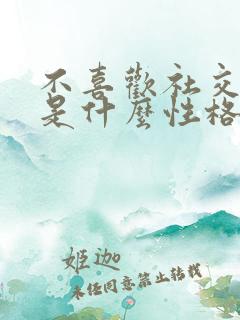 不喜歡社交
是什麼性格
姬迦
未經同意禁止轉載